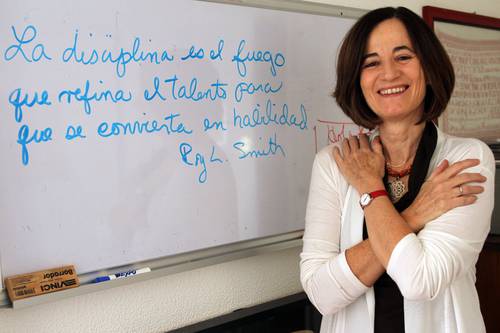 La disciplina es el fuego
que refina el talento para
que se convierta en habilidad
Roy L. Smith
VINCI
Borrador